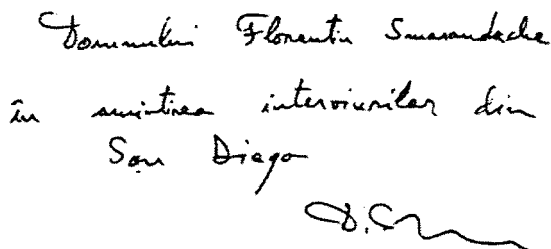 Domnului Florentin Smarandache
în amintirea interviurilor din
San Diego